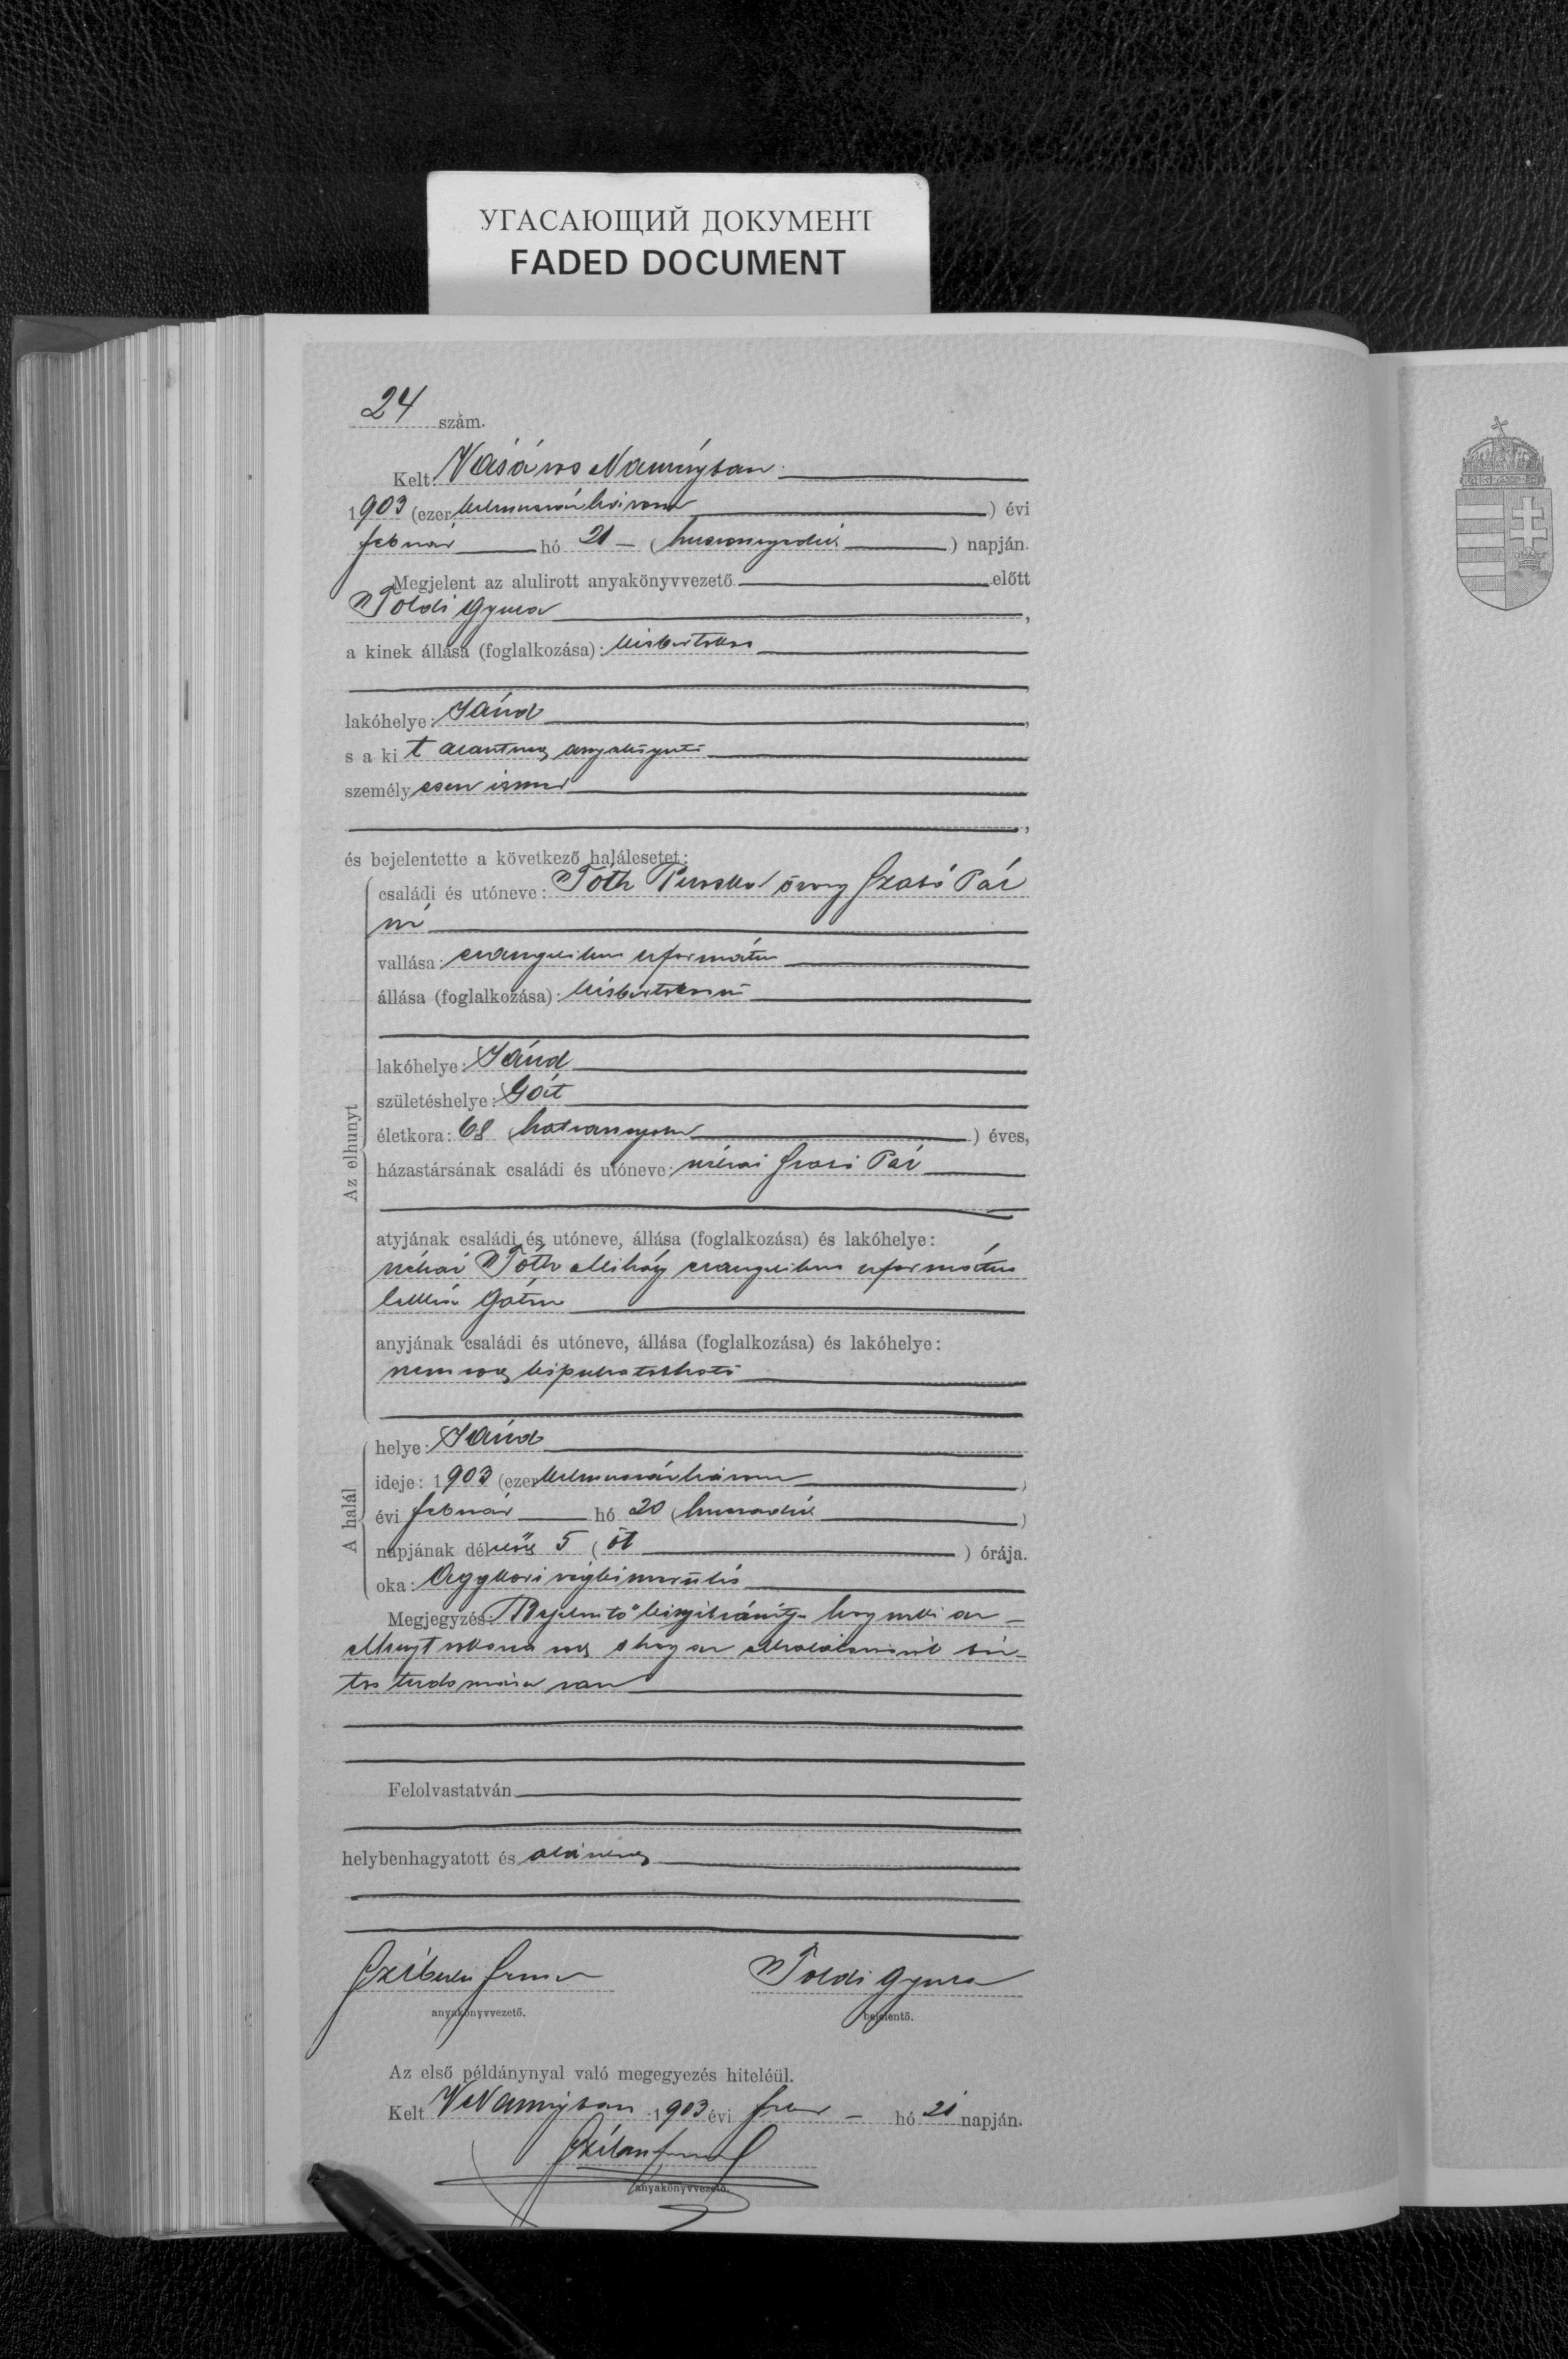 УГАСАЮЩИЙ ДОКУМЕНТ
FADED DOCUMENT
24 szám.
Kelt Vásáros Naményban
1903 (ezer kilenczszázhárom) évi
február hó 21 (huszonegyedik) napján.
Megjelent az alulirott anyakönyvvezető előtt
Toldi Gyula,
a kinek állása (foglalkozása): kisbirtokos
lakóhelye: Jánd,
s a kit alantirt anyakönyvvezető
személyesen ismer,
és bejelentette a következő halálesetet:
Az elhunyt
családi és utóneve: Tóth Piroska özvegy Szabó Pál
né
vallása: evangelikus református
állása (foglalkozása): kisbirtokosnő
lakóhelye: Jánd
születéshelye:
életkora: 68 (hatvannyolcz) éves,
házastársának családi és utóneve: néhai Szabó Pál
atyjának családi és utóneve, állása (foglalkozása) és lakóhelye:
néhai Tóth Mihály evangelikus református
anyjának családi és utóneve, állása (foglalkozása) és lakóhelye:
nem volt kipuhatolható
A halál
helye: Jánd
ideje: 1903 (ezer kilenczszázhárom)
évi február hó 20 (huszadik)
napjának délelőtt 5 (öt) órája.
oka: Aggkori végkimerülés
Megjegyzés: Bejelentő bizonyítja hogy az
elhunyt rokona volt s hogy az elhalálozásról biz
tos tudomása van
Felolvastatván
helybenhagyatott és aláíratott
anyakönyvvezető.
Toldi Gyula
bejelentő.
Az első példánynyal való megegyezés hiteléül.
Kelt VNaményban 1903 évi febr hó 21 napján.
anyakönyvvezető.